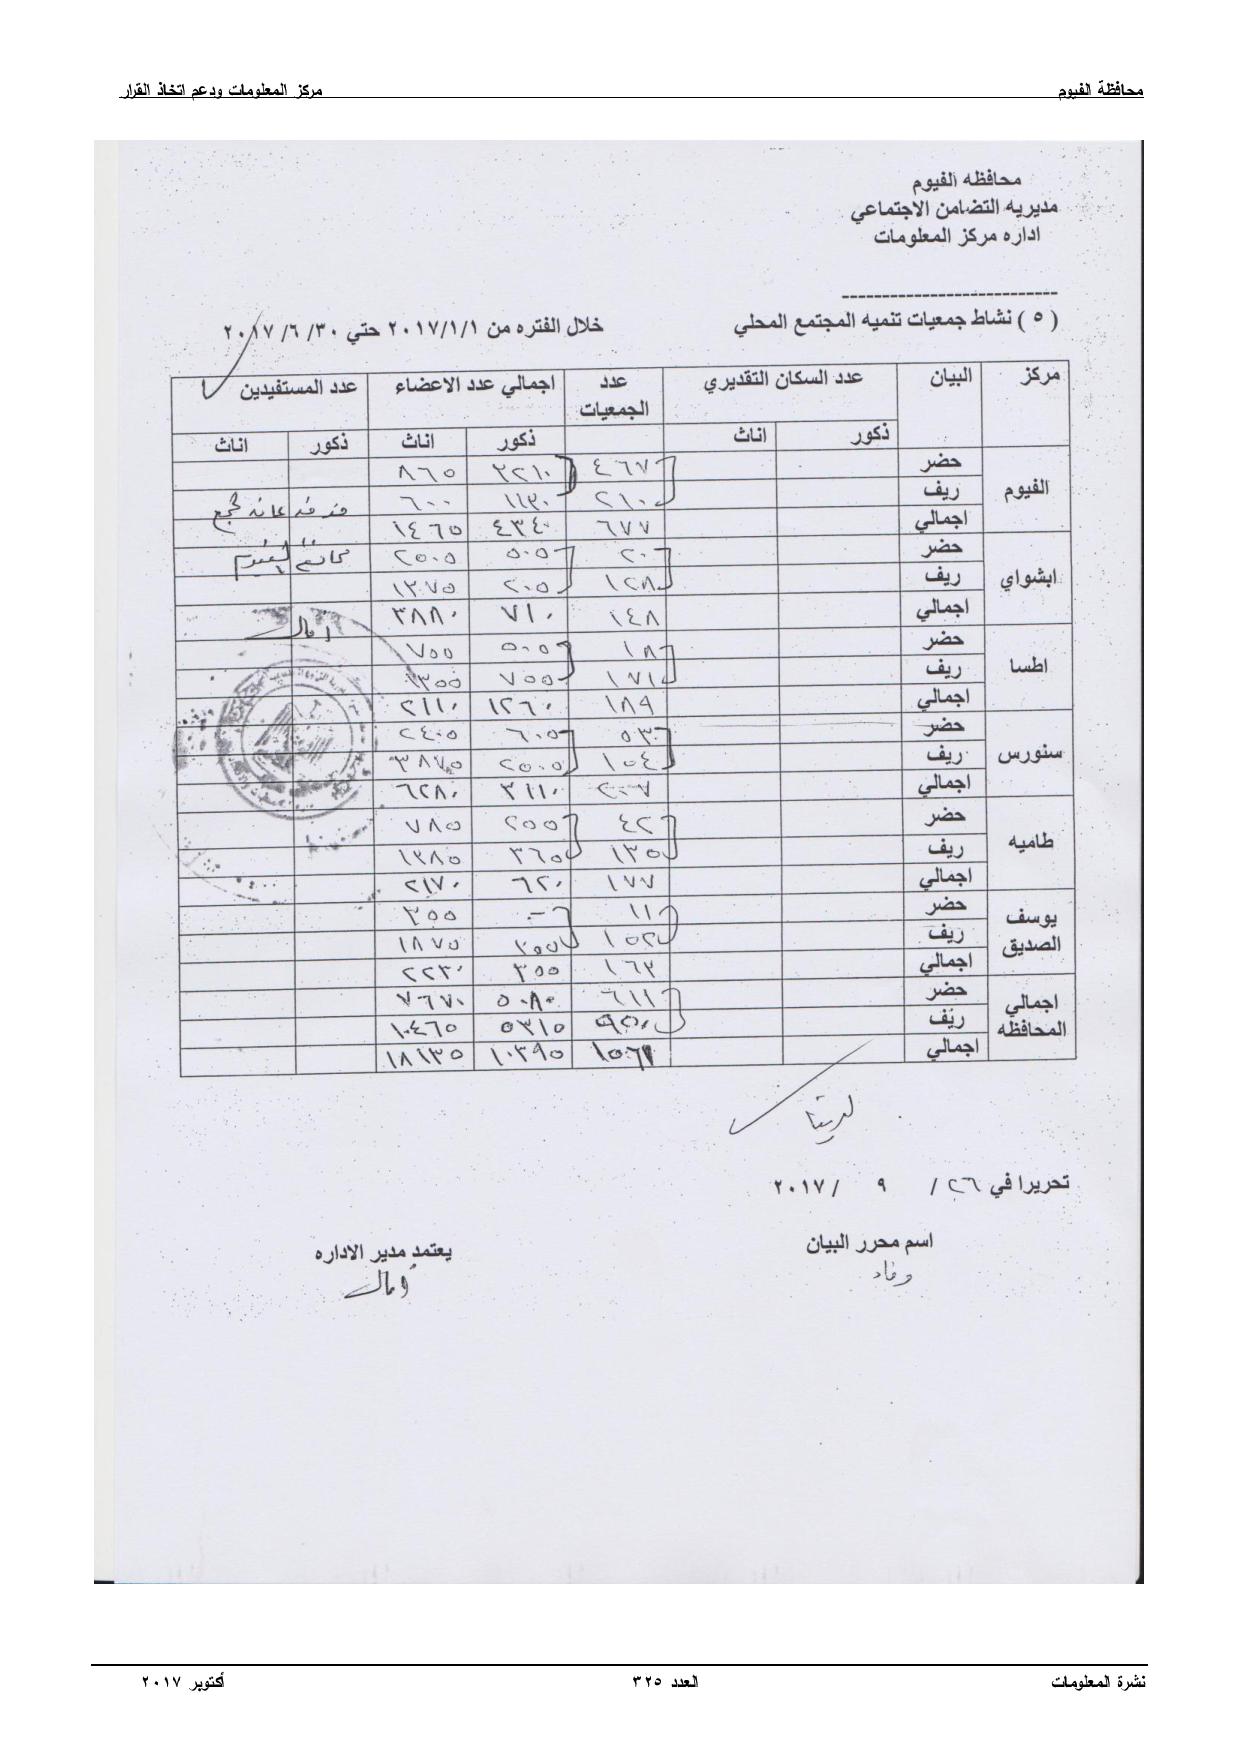 محافظة الفيوم مركز المعلومات ودعم اتخاذ القرار
محافظه الفيوم
مديريه التضامن الاجتماعي
اداره مركز المعلومات
---------------------------
( ٥ ) نشاط جمعيات تنميه المجتمع المحلي خلال الفتره من ٢٠١٧/١/١ حتي ٣٠/ ٦/ ٢٠١٧
مركز البيان عدد السكان التقديري عدد الجمعيات اجمالي عدد الاعضاء عدد المستفيدين
ذكور اناث ذكور اناث ذكور اناث
الفيوم
حضر ٤٦٧ ٣٢١٠ ٨٦٥
ريف ٢١٠ ١١٣٠ ٦٠٠
اجمالي ٦٧٧ ٤٣٤٠ ١٤٦٥
ابشواي
حضر ٢٠ ٥٠٥ ٢٥٠٥
ريف ١٢٨ ٢٠٥ ١٣٧٥
اجمالي ١٤٨ ٧١٠ ٣٨٨٠
اطسا
حضر ١٨ ٥٠٥ ٧٥٥
ريف ١٧١ ٧٥٥ ١٣٥٥
اجمالي ١٨٩ ١٢٦٠ ٢١١٠
سنورس
حضر ٥٣ ٦٠٥ ٢٤٠٥
ريف ١٥٤ ٢٥٠٥ ٣٨٧٥
اجمالي ٢٠٧ ٣١١٠ ٦٢٨٠
طاميه
حضر ٤٢ ٢٥٥ ٧٨٥
ريف ١٣٥ ٣٦٥ ١٣٨٥
اجمالي ١٧٧ ٦٢٠ ٢١٧٠
يوسف الصديق
حضر ١١ - ٣٥٥
ريف ١٥٢ ٣٥٥ ١٨٧٥
اجمالي ١٦٣ ٣٥٥ ٢٢٣٠
اجمالي المحافظه
حضر ٦١١ ٥٠٨٠ ٧٦٧٠
ريف ٩٥٠ ٥٣١٥ ١٠٤٦٥
اجمالي ١٥٦١ ١٠٣٩٥ ١٨١٣٥
تحريرا في ٢٦ / ٩ / ٢٠١٧
اسم محرر البيان يعتمد مدير الاداره
وفاء آمال
نشرة المعلومات العدد ٣٢٥ أكتوبر ٢٠١٧